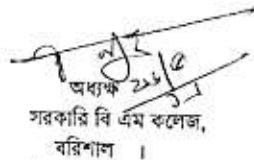 অধ্যক্ষ
সরকারি বি এম কলেজ,
বরিশাল ।